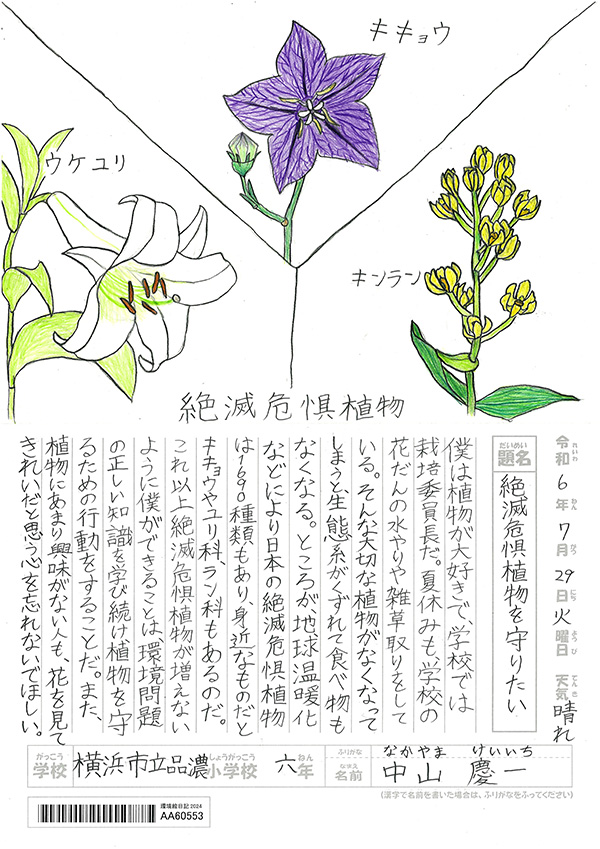 キキョウ
ウケユリ
キンラン
絶滅危惧植物
令和6年7月29日火曜日 天気 晴れ
れいわ ねん がつ にち ようび てんき
だいめい
題名
絶滅危惧植物を守りたい
僕は植物が大好きで、学校では
栽培委員長だ。夏休みも学校の
花だんの水やりや雑草取りをして
いる。そんな大切な植物がなくなって
しまうと生態系がくずれて食べ物も
なくなる。ところが、地球温暖化
などにより日本の絶滅危惧植物
は1690種類もあり、身近なものだと
キキョウやユリ科、ラン科もあるのだ。
これ以上絶滅危惧植物が増えない
ように僕ができることは、環境問題
の正しい知識を学び続け、植物を守
るための行動をすることだ。また、
植物にあまり興味がない人も、花を見て
きれいだと思う心を忘れないでほしい。
がっこう
学校
横浜市立品濃
しょうがっこう
小学校
六
ねん
年
ふりがな
なかやま けいいち
なまえ
名前
中山 慶一
(漢字で名前を書いた場合は、ふりがなをふってください)
環境絵日記2024
AA60553